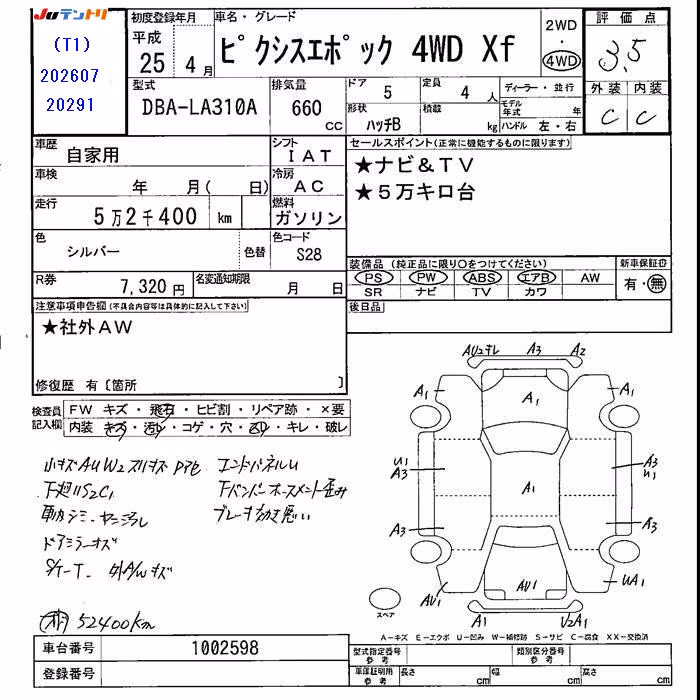 JUテントリ
(T1)
202607
20291
初度登録年月
平成
25 4月
車名・グレード
ピクシスエポック 4WD Xf
2WD
・
4WD
評価点
3.5
外装 内装
C C
型式
DBA-LA310A
排気量
660
cc
ドア 5
形状 ハッチB
定員 4 人
積載 kg
ディーラー・並行
モデル年式 年
ハンドル 左・右
車歴 自家用
シフト IAT
車検 年 月( 日)
冷房 AC
走行 5万2千400 km
燃料 ガソリン
色 シルバー 色替
色コード S28
R券 7,320円
名変通知期限 月 日
セールスポイント(正常に機能するものに限ります)
★ナビ&TV
★5万キロ台
装備品 (純正品に限り○をつけてください)
PS PW ABS エアB AW
SR ナビ TV カワ
新車保証書
有・無
後日品
注意事項申告欄(不具合内容等は具体的に記入して下さい)
★社外AW
修復歴 有〔箇所 〕
検査員記入欄
FW キズ・飛石・ヒビ割・リペア跡・×要
内装 キズ・汚レ・コゲ・穴・スレ・キレ・破レ
下廻りS2C1
ドアミラーキズ
エンドパネルU
ブレーキ効き悪い
52400km
AU2キレ A3 A2
A1 A1 A1
U1 A3
A3
A1
A3 U1
A3
AU1 AU1 UA1
A1 U2A1
スペア
A-キズ E-エクボ U-凹み W-補修跡 S-サビ C-腐食 XX-交換済
車台番号 1002598
登録番号
型式指定番号 参考
類別区分番号 参考
車庫証明用 参考
長さ cm
幅 cm
高さ cm